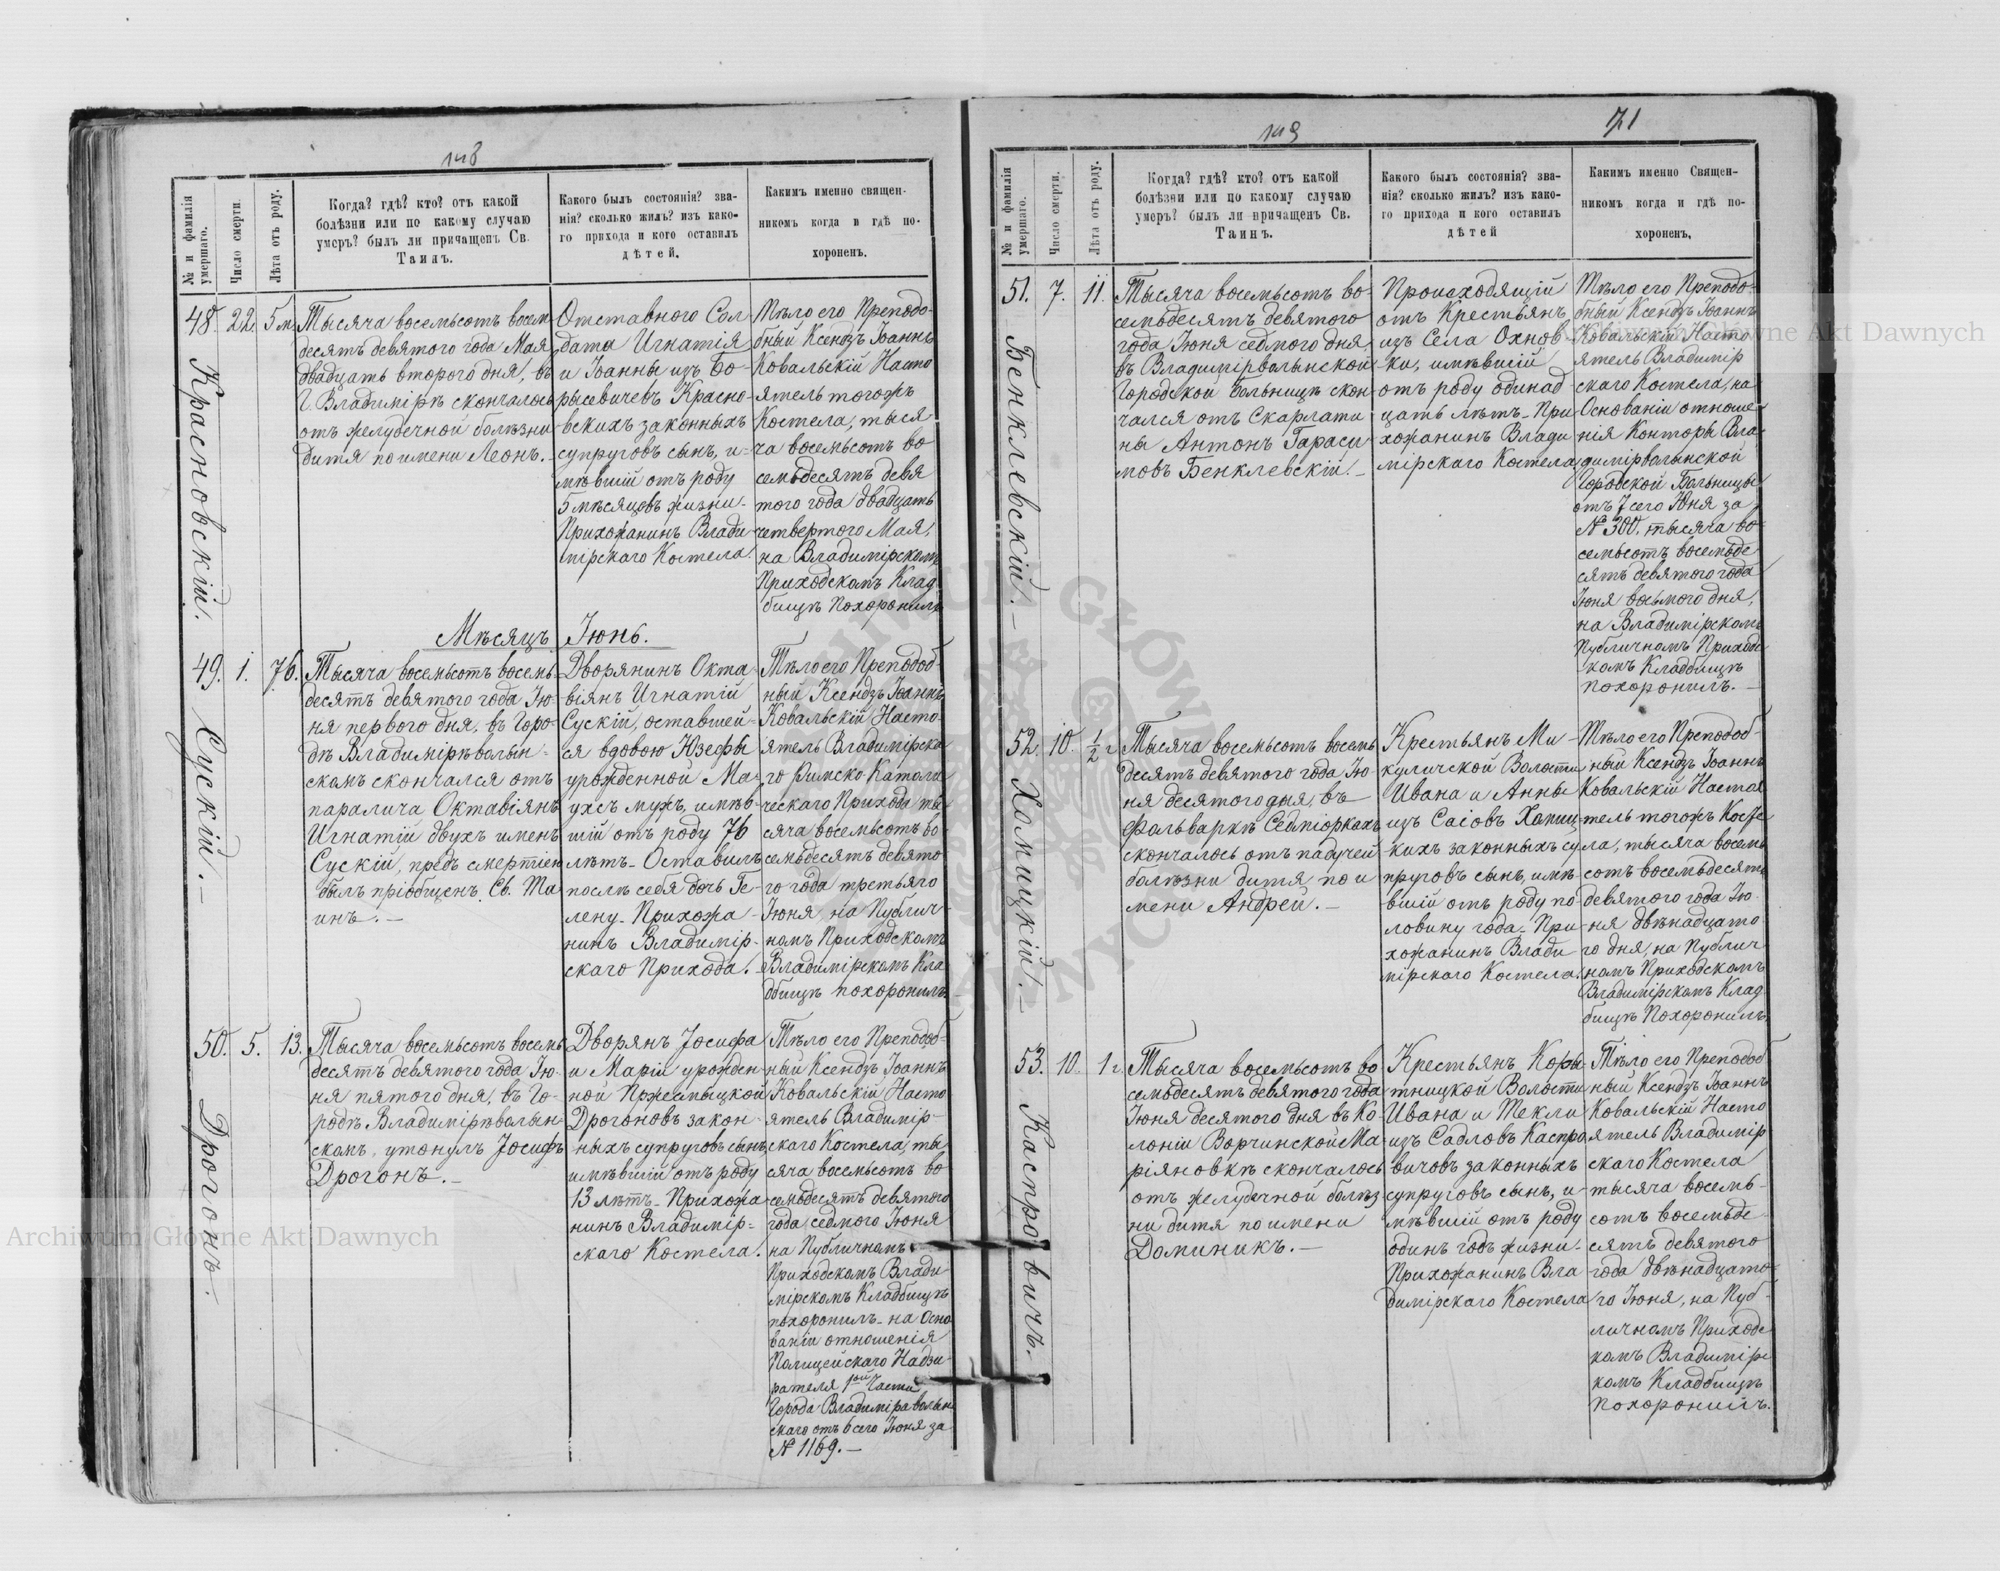 148
№ и фамилія умершаго.
Число смерти.
Лѣта отъ роду.
Когда? гдѣ? кто? отъ какой
болѣзни или по какому случаю
умеръ? былъ ли причащенъ Св.
Таинъ.
Какого былъ состоянія? зва-
нія? сколько жилъ? изъ како-
го прихода и кого оставилъ
дѣтей.
Какимъ именно священ-
никомъ когда и гдѣ по-
хороненъ.
48.
22.
5 м.
Красновскій.
Тысяча восемьсотъ восем
десятъ девятого года Мая
двадцать второго дня, въ
Г. Владимірѣ скончалось
отъ желудочной болѣзни
дитя по имени Леонъ.
Отставного Сол
дата Игнатія
и Іоанны изъ Бо-
рысевичевъ Красно-
вскихъ законныхъ
супруговъ сынъ, и-
мѣвшій отъ роду
5 мѣсяцовъ жизни.
Прихожанинъ Влади-
мірскаго Костела
Тѣло его Преподо-
бный Ксендзъ Іоаннъ
Ковальскій Насто
ятель тогожъ
Костела, тыся
ча восемьсотъ во
семьдесятъ девя
того года двадцать
четвертого Мая,
на Владимірскомъ
Приходскомъ Клад
бищѣ похоронилъ
Мѣсяцъ Іюнь.
49.
1.
76.
Сускій.
Тысяча восемьсотъ восемь
десятъ девятого года Ію-
ня первого дня, въ Горо-
дѣ Владимірѣволын-
скомъ скончался отъ
паралича Октавіянъ
Игнатій двухъ именъ
Сускій, предъ смертію
былъ пріобщенъ Св. Та
инъ.
Дворянинъ Окта
віянъ Игнатій
Сускій, оставшей-
ся вдовою Юзефы
урожденной Ма-
ухсъ мужъ, имѣв-
шій отъ роду 76
лѣтъ. Оставилъ
послѣ себя дочь Ге-
лену. Прихожа-
нинъ Владимір-
скаго Прихода.
Тѣло его Преподоб-
ный Ксендзъ Іоаннъ
Ковальскій Насто-
ятель Владимірска
го Римско-Католи
ческаго Прихода ты
сяча восемьсотъ во
семьдесятъ девято
го года третьяго
Іюня, на Публич-
номъ Приходскомъ
Владимірскомъ Кла
дбищѣ похоронилъ
50.
5.
13.
Дрогонъ.
Тысяча восемьсотъ восемь
десятъ девятого года Ію-
ня пятого дня, въ Го-
родѣ Владимірѣволын-
скомъ, утонулъ Іосифъ
Дрогонъ.
Дворянъ Іосифа
и Маріи урожден
ной Пржесмыцкой
Дрогоновъ закон-
ныхъ супруговъ сынъ,
имѣвшій отъ роду
13 лѣтъ. Прихожа
нинъ Владимір-
скаго Костела.
Тѣло его Преподоб-
ный Ксендзъ Іоаннъ
Ковальскій Насто
ятель Владимір-
скаго Костела, ты
сяча восемьсотъ во
семьдесятъ девятого
года седмого Іюня
на Публичномъ
Приходскомъ Влади
мірскомъ Кладбищѣ
похоронилъ на осно
ваніи отношенія
Полицейскаго Надзи-
рателя 1ой Части
Города Владиміраволын
скаго отъ 6 сего Іюня за
№ 1169.
149
71
№ и фамилія умершаго.
Число смерти.
Лѣта отъ роду.
Когда? гдѣ? кто? отъ какой
болѣзни или по какому случаю
умеръ? былъ ли причащенъ Св.
Таинъ.
Какого былъ состоянія? зва-
нія? сколько жилъ? изъ како-
го прихода и кого оставилъ
дѣтей
Какимъ именно Священ-
никомъ когда и гдѣ по-
хороненъ.
51.
7.
11.
Бенклевскій.
Тысяча восемьсотъ во-
семьдесятъ девятого
года Іюня седмого дня
въ Владимірволынской
Городской больницѣ скон
чался отъ Скарлати
ны Антонъ Гараси-
мовъ Бенклевскій.
Происходящій
отъ Крестьянъ
изъ Села Охнов-
ки, имѣвшій
отъ роду одинад
цать лѣтъ. При
хожанинъ Влади
мірскаго Костела
Тѣло его Преподо-
бный Ксендзъ Іоаннъ
Ковальскій Насто
ятель Владимір
скаго Костела, на
Основаніи отноше-
нія Конторы Вла-
димірволынской
Городской Больницы
отъ 7 сего Юня за
№ 300, тысяча во-
семьсотъ восемьде
сятъ девятого года
Іюня восьмого дня,
на Владимірскомъ
Публичномъ Приход
скомъ Кладбищѣ
похоронилъ.
52.
10.
½ г
Хомицкій.
Тысяча восемьсотъ восемь
десятъ девятого года Ію
ня десятого дня, въ
Фольваркѣ Седміоркахъ
скончалось отъ падучей
болѣзни дитя по и
мени Андрей.
Крестьянъ Ми-
куличской Волости
Ивана и Анны
изъ Саіовъ Хомиц
кихъ законныхъ су
пруговъ сынъ, имѣ-
вшій отъ роду по-
ловину года. При-
хожанинъ Влади
мірскаго Костела.
Тѣло его Преподоб-
ный Ксендзъ Іоаннъ
Ковальскій Настоя
тель тогожъ Косте
ла, тысяча восемь
сотъ восемьдесятъ
девятого года Ію
ня двѣнадцато-
го дня, на Публич
номъ Приходскомъ
Владимірскомъ Клад
бищѣ Похоронилъ
53.
10.
1 г
Каспровичъ.
Тысяча восемьсотъ во
семьдесятъ девятого года
Іюня десятого дня въ Ко-
лоніи Ворчинской Ма
ріяновкѣ скончалось
отъ желудочной болѣз
ни дитя по имени
Доминикъ.
Крестьянъ Коры
тницкой Волости
Ивана и Текли
изъ Садловъ Каспро
вичовъ законныхъ
супруговъ сынъ, и-
мѣвшій отъ роду
одинъ годъ жизни.
Прихожанинъ Вла
димірскаго Костела
Тѣло его Преподоб
ный Ксендзъ Іоаннъ
Ковальскій Насто
ятель Владимір
скаго Костела
тысяча восемь-
сотъ восемьде
сятъ девятого
года двѣнадцато-
го Іюня, на Пуб-
личномъ Приходс
комъ Владимірс
комъ Кладбищѣ
похоронилъ.
Archiwum Główne Akt Dawnych
Archiwum Główne Akt Dawnych